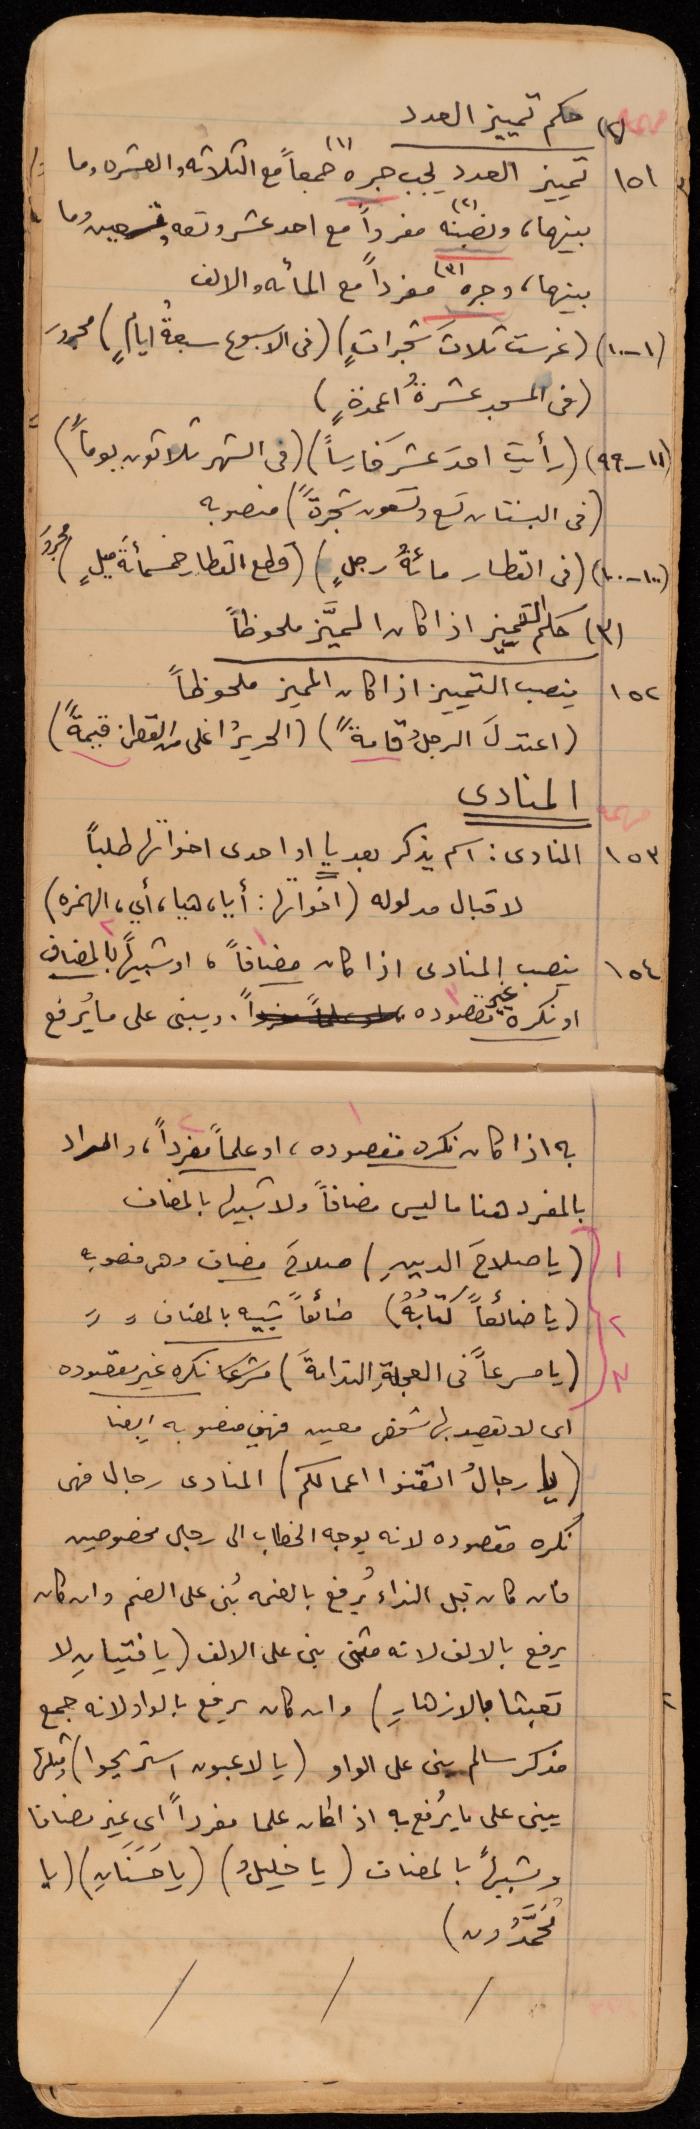 مهمة (٢) حكم تمييز العدد
١٥١ تمييز العدد يجب جره (١) جمعاً مع الثلاثه والعشره وما
بينهما، ونصبه (٢) مفرداً مع احد عشر وتسعه وتسعين وما
بينهما، وجره (٣) مفرداً مع المائه والالف
(١-١٠) (غرست ثلاثَ شجراتٍ) (فى الاسبوع سبعةُ ايامٍ) مجرور
(فى المسجد عشرةُ اعمدةٍ)
(١١-٩٩) (رأيت احدَ عشرَ فارساً) (فى الشهر ثلاثون يوماً)
(فى البستان تسع وتسعون شجرةً) منصوبه
(١٠٠-١٠٠٠) (فى القطار مائةُ رجلٍ) (قطع القطار خمسمائةَ ميلٍ) مجرور
(٣) حكم التمييز اذا كان المميَّز ملحوظاً
١٥٢ ينصب التمييز اذا كان المميز ملحوظاً
(اعتدلَ الرجلُ قامةً) (الحريرُ اغلى من القطن قيمةً)
المنادى
مهمه
١٥٣ المنادى: اسم يذكر بعد يا او احدى اخواتها طلباً
لاقبال مدلوله (اخواتها: أيا، هيا، أي، الهمزه)
١٥٤ ينصب المنادى اذا كان مضافاً ١، او شبيهاً بالمضاف ٢
او نكره غير مقصوده ٣ او علماً مفرداً. ويبنى على ما يُرفع
به اذا كان نكره مقصوده ١، او علماً مفرداً ٢، والمراد
بالمفرد هنا ما ليس مضافاً ولا شبيها بالمضاف
١ (يا صلاحَ الدين) صلاحَ مضاف وهى منصوبه
٢ (يا ضائعاً كتابُهُ) ضائعاً شبيه بالمضاف 〃 〃
٣ (يا مسرعاً فى العجلةِ الندامةَ) مسرعا نكره غير مقصوده
اى لا يقصد بها شخص معين فهى منصوبه ايضا
(يا رجالُ اتقنوا اعمالكم) المنادى رجال فهى
نكره مقصوده لانه يوجه الخطاب الى رجال مخصوصين
فان كان قبل النداء يُرفع بالضمه بُنى على الضم وان كان
يرفع بالالف لانه مثنى بنى على الالف (يا فتيانِ لا
تعبثا بالازهار) وان كان يرفع بالواو لانه جمع
مذكر سالم يبنى على الواو (يا لاعبون استريحوا) ومثلها
يبنى على ما يُرفع به اذا كان علما مفرداً اى غير مضافا
وشبيهاً بالمضاف (يا خليلُ) (يا حَسَنَانِ) (يا
مُحَمَّدُون)